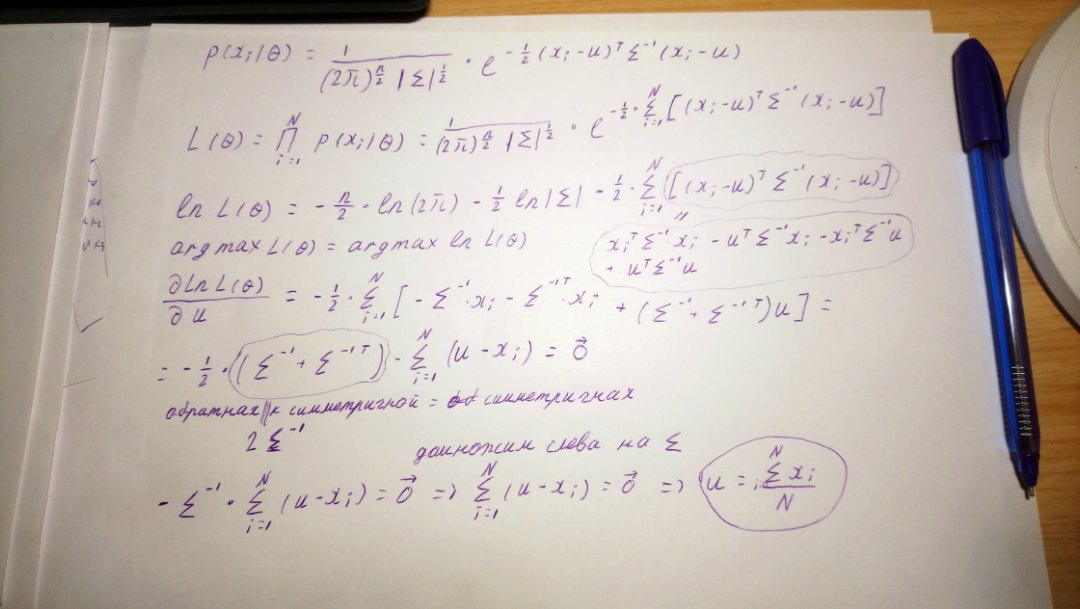 p(xᵢ|θ) = 1/((2π)^(n/2) |Σ|^(1/2)) · e^(-1/2 (xᵢ-u)ᵀ Σ⁻¹ (xᵢ-u))
L(θ) = ∏_{i=1}^{N} p(xᵢ|θ) = 1/((2π)^(n/2) |Σ|^(1/2)) · e^(-1/2 · Σ_{i=1}^{N} [(xᵢ-u)ᵀ Σ⁻¹ (xᵢ-u)])
ln L(θ) = -n/2 · ln(2π) - 1/2 ln|Σ| - 1/2 · Σ_{i=1}^{N} [(xᵢ-u)ᵀ Σ⁻¹ (xᵢ-u)]
argmax L(θ) = argmax ln L(θ)
xᵢᵀ Σ⁻¹ xᵢ - uᵀ Σ⁻¹ xᵢ - xᵢᵀ Σ⁻¹ u
+ uᵀ Σ⁻¹ u
∂ ln L(θ)/∂u = -1/2 · Σ_{i=1}^{N} [-Σ⁻¹ · xᵢ - Σ⁻¹ᵀ · xᵢ + (Σ⁻¹ + Σ⁻¹ᵀ)u] =
= -1/2 · (Σ⁻¹ + Σ⁻¹ᵀ) · Σ_{i=1}^{N} (u - xᵢ) = 0⃗
обратная к симметричной = симметричная
2 Σ⁻¹
домножим слева на Σ
- Σ⁻¹ · Σ_{i=1}^{N} (u - xᵢ) = 0⃗ => Σ_{i=1}^{N} (u - xᵢ) = 0⃗ => u = Σᵢ^{N} xᵢ / N